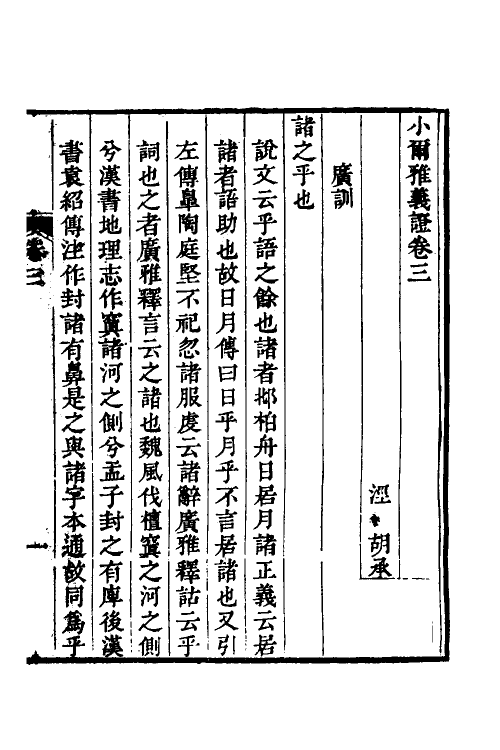 小爾雅義證卷三
涇 胡承
廣訓
諸之乎也
說文云乎語之餘也諸者邶柏舟日居月諸正義云居
諸者語助也故日月傳曰日乎月乎不言居諸也又引
左傳皐陶庭堅不祀忽諸服虔云諸辭廣雅釋詁云乎
詞也之者廣雅釋言云之諸也魏風伐檀寘之河之側
兮漢書地理志作寘諸河之側兮孟子封之有庳後漢
書袁紹傳注作封諸有鼻是之與諸字本通故同為乎
卷三
一